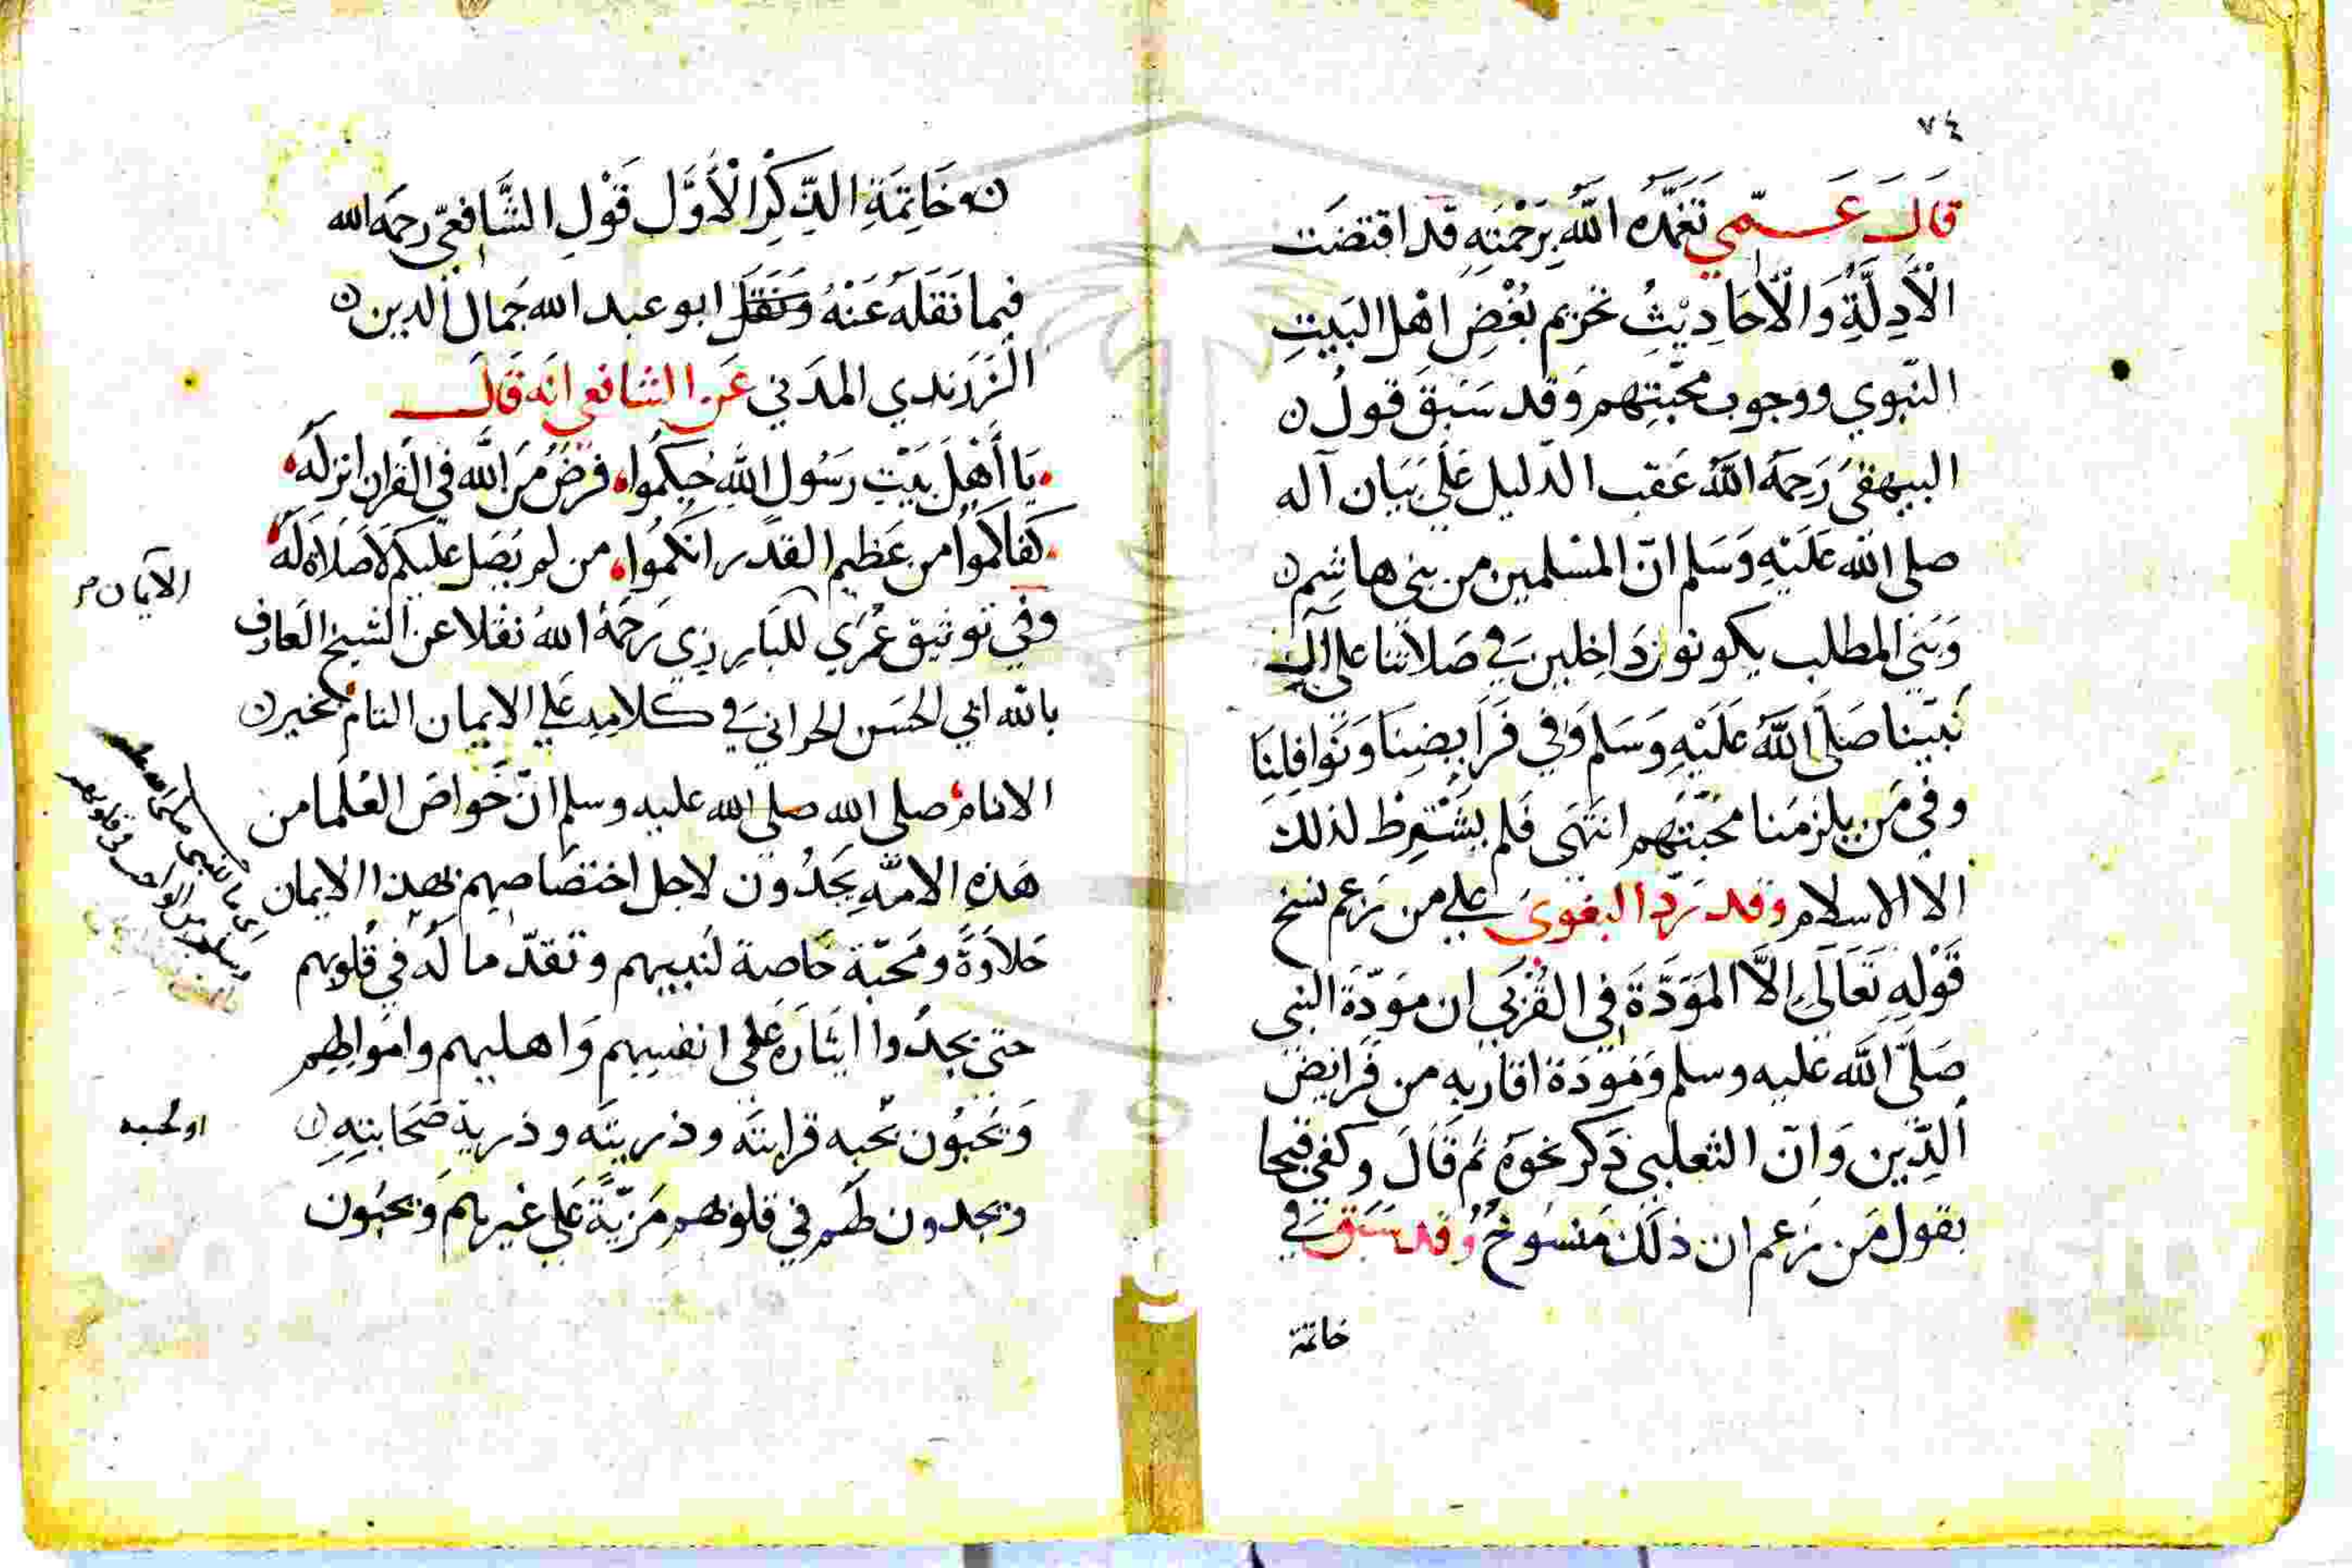 ٧٤
قَالَ عَمّي تَغَمَّدَهُ اللّٰهُ بِرَحْمَتِهِ قَد اقتضَت
الْأَدِلَّةِ وَالْأحَادِيْثُ تحريم بُغْضِ اهْل البَيتِ
النّبوي ووجوب محَبّتِهم وَقد سَبَقَ قولُ ن
البيهقيُ رَحِمَهُ اللّٰهُ عَقب الدّليل عَلَى بَيَان آله
صلى الله عَلَيْهِ وَسَلم انّ المسْلمين من بنى هاشِم ن
وَبَنَى المطلب يكونوُن دَاخِلين فِي صَلاتنا على آل
نَبيّنا صَلَّى اللّٰهُ عَلَيْهِ وَسَلم وَفي فَرَايِضِنَا وَنَوافِلِنَا
وفي مَن يلزمُنا محبّتهم انتَهَى فَلم يشْتَرِطْ لذلك
الا الاسلام وقد رَدّ البغوىَ على من زعم نسخ
قَوْلِهِ تَعَالَى اِلاَّ المَوَدَّةَ فِي القُرْبَى ان موَدّةَ النبى
صَلَّى اللّٰه عليه وسلم وَموَدَة اقاربِه من فَرايِضَ
اَلدِّين وَانّ الثعلبى ذَكر نحوَهُ ثم قَالَ وكفى قبحا
بقول مَن زعم ان ذلَك مَنسُوخٌ وقد سَبَقَ فِي
خاتمة
ن خَاتِمَةِ الذِّكِرِ الْأَوَّل قَوْلِ الشَّافعيّ رحمَه الله
فيما نَقَلَهُ عَنْهُ وَنَقَلَ ابو عبد الله جُمال الدين ن
الزَرَندي المدَني عَن الشافعي انَه قَالَ
يَا أَهْلَ بَيْتِ رَسُول اللّهِ حُبكُموا فرضٌ مِنَ اللَّه في القران انزلَهُ
كفاكموا من عَظيم القدْر انكمُوا من لم يُصَل عليكم لاَ صَلاة لَهُ
وَفي توثيق عُرَي للبَارِزي رَحَمَهُ اللهُ نقلا عن الشيخ العَارف
بالله ابي الحسَن الحراني فِي كلامِه عَلى الايمان التام بخير ن
الانام صلى الله صلى الله عليه وسلم انّ خَواصَ العُلَما من
هَذِهِ الامّهِ يَجدُون لاجل اختصَاصِهم بهذا الايمان
حَلاوَةً ومَحَبّة خَاصة لنبيهم وتقدّ مالهُ في قُلوبهم
حتى يجدُوا ايثارَهُ عَلى انفسِهم وَاهليهم وامَوالِهم
وَيُحَبُون بحُبه قرابتَه وذريتَه وذرية صَحَابتِهِ ن
ويجدون لَهم في قلوبهم مَزيّةً عَلى غيرهم وَيحبُون
الآيمان م